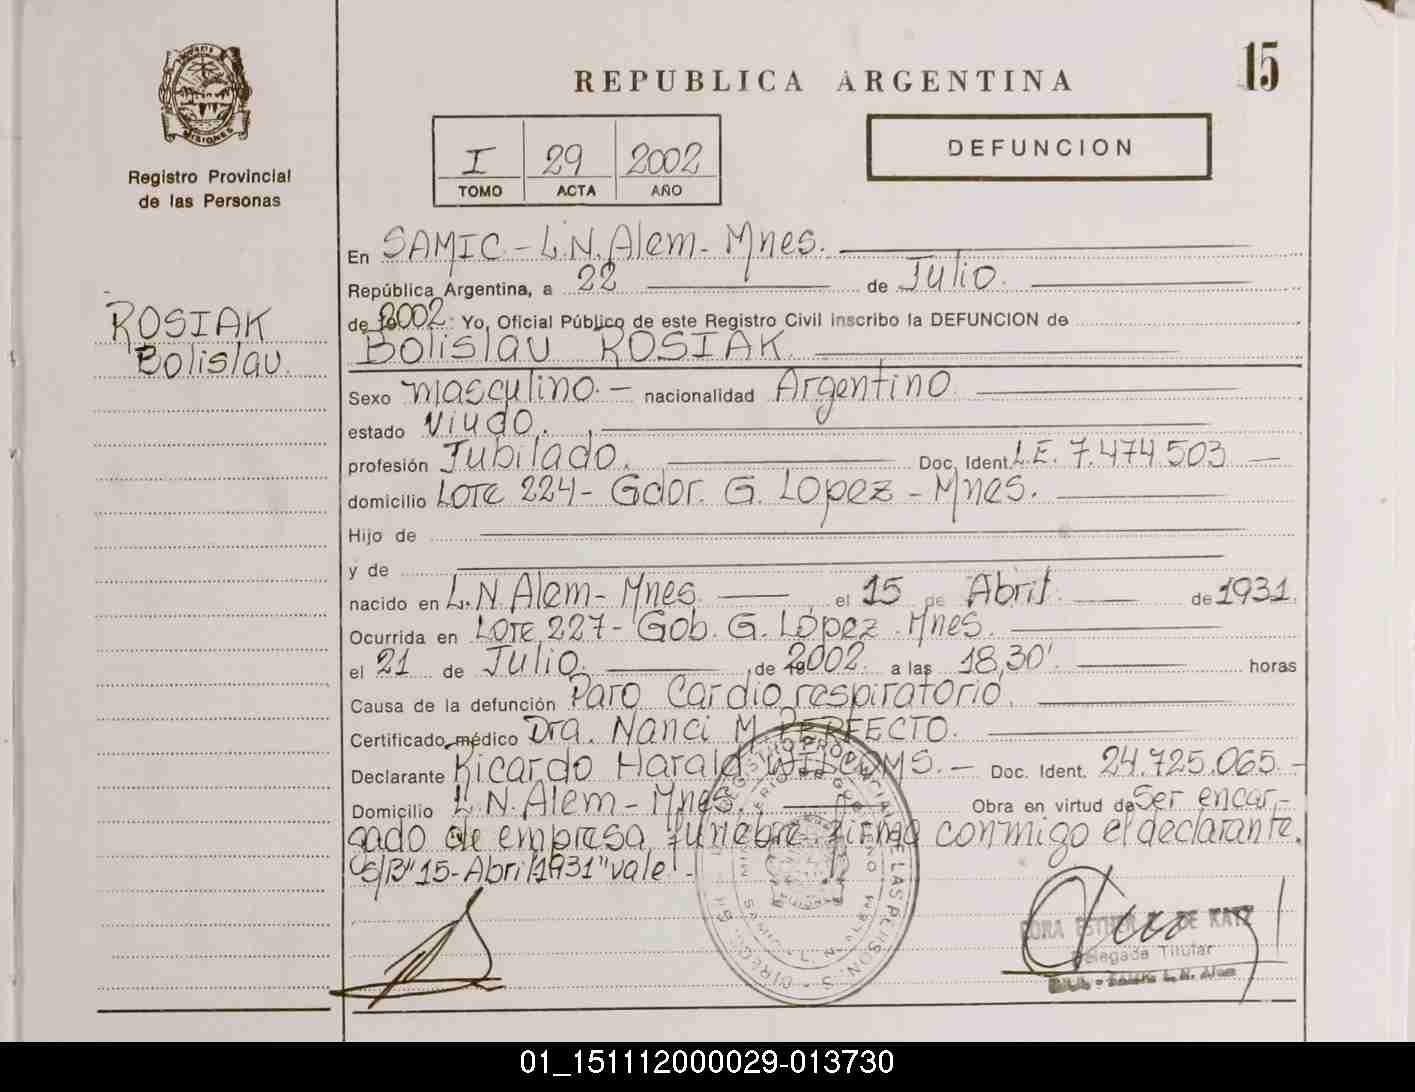 15
REPUBLICA ARGENTINA
I 29 2002
TOMO ACTA AÑO
DEFUNCION
MISIONES
Registro Provincial
de las Personas
ROSIAK
Bolislau.
En SAMIC - L.N. Alem - Mnes.
República Argentina, a 22 de Julio.
de 2002. Yo, Oficial Público de este Registro Civil inscribo la DEFUNCION de
Bolislau ROSIAK.
Sexo masculino. - nacionalidad Argentino.
estado Viudo.
profesión Jubilado. Doc. Ident. L.E. 7.474.503 -
domicilio LOTE 224 - Gdor. G. Lopez - Mnes.
Hijo de
y de
nacido en L.N. Alem - Mnes. el 15 de Abril. de 1931.
Ocurrida en LOTE 227 - Gob. G. López. Mnes.
el 21 de Julio. de 2002. a las 18,30'. horas
Causa de la defunción Paro Cardio respiratorio.
Certificado médico Dra. Nanci M. PERFECTO.
Declarante Ricardo Harald - Doc. Ident. 24.725.065. -
Domicilio L.N. Alem - Mnes. Obra en virtud de Ser encar-
gado de empresa fúnebre firma conmigo el declarante.
S/B "15 - Abril 1931" vale. -
REGISTRO PROVINCIAL DE LAS PERSONAS
DORA ESTHER DE KATZ
Delegada Titular
L. N. Alem
01_151112000029-013730